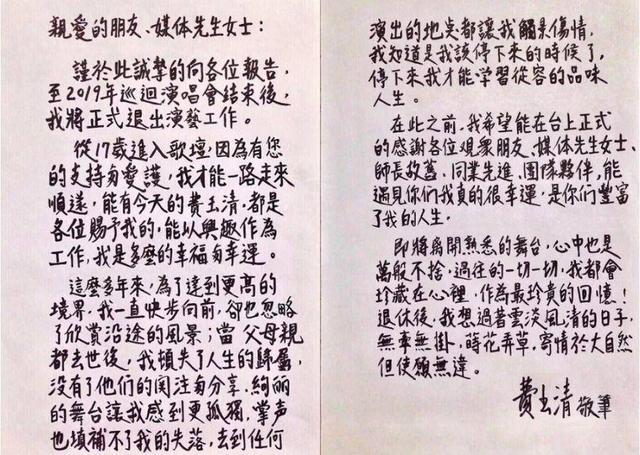 親愛的朋友、媒体先生女士：
謹於此誠摯的向各位報告，
至2019年巡迴演唱會結束後，
我將正式退出演藝工作。
從17歲進入歌壇，因為有您
的支持與愛護，我才能一路走來
順遂，能有今天的費玉清，都是
各位賜予我的，能以興趣作為
工作，我是多麼的幸福與幸運。
這麼多年來，為了達到更高的
境界，我一直快步向前，卻也忽略
了欣賞沿途的風景；當父母親
都去世後，我頓失了人生的歸屬，
沒有了他們的関注與分享，絢麗
的舞台讓我感到更孤獨，掌声
也填補不了我的失落，去到任何
演出的地点都讓我觸景傷情，
我知道是我該停下來的時候了，
停下來我才能学習從容的品味
人生。
在此之前，我希望能在台上正式
的感謝各位観衆朋友、媒体先生女士、
師長故舊、同業先進、團隊夥伴，能
遇見你們我真的很幸運，是你們豐富
了我的人生。
即將离開熟悉的舞台，心中也是
萬般不捨，過往的一切一切，我都會
珍藏在心裡，作為最珍貴的回憶！
退休後，我想過著雲淡風清的日子，
無牽無掛，蒔花弄草，寄情於大自然
但使願無違。
費玉清 敬筆